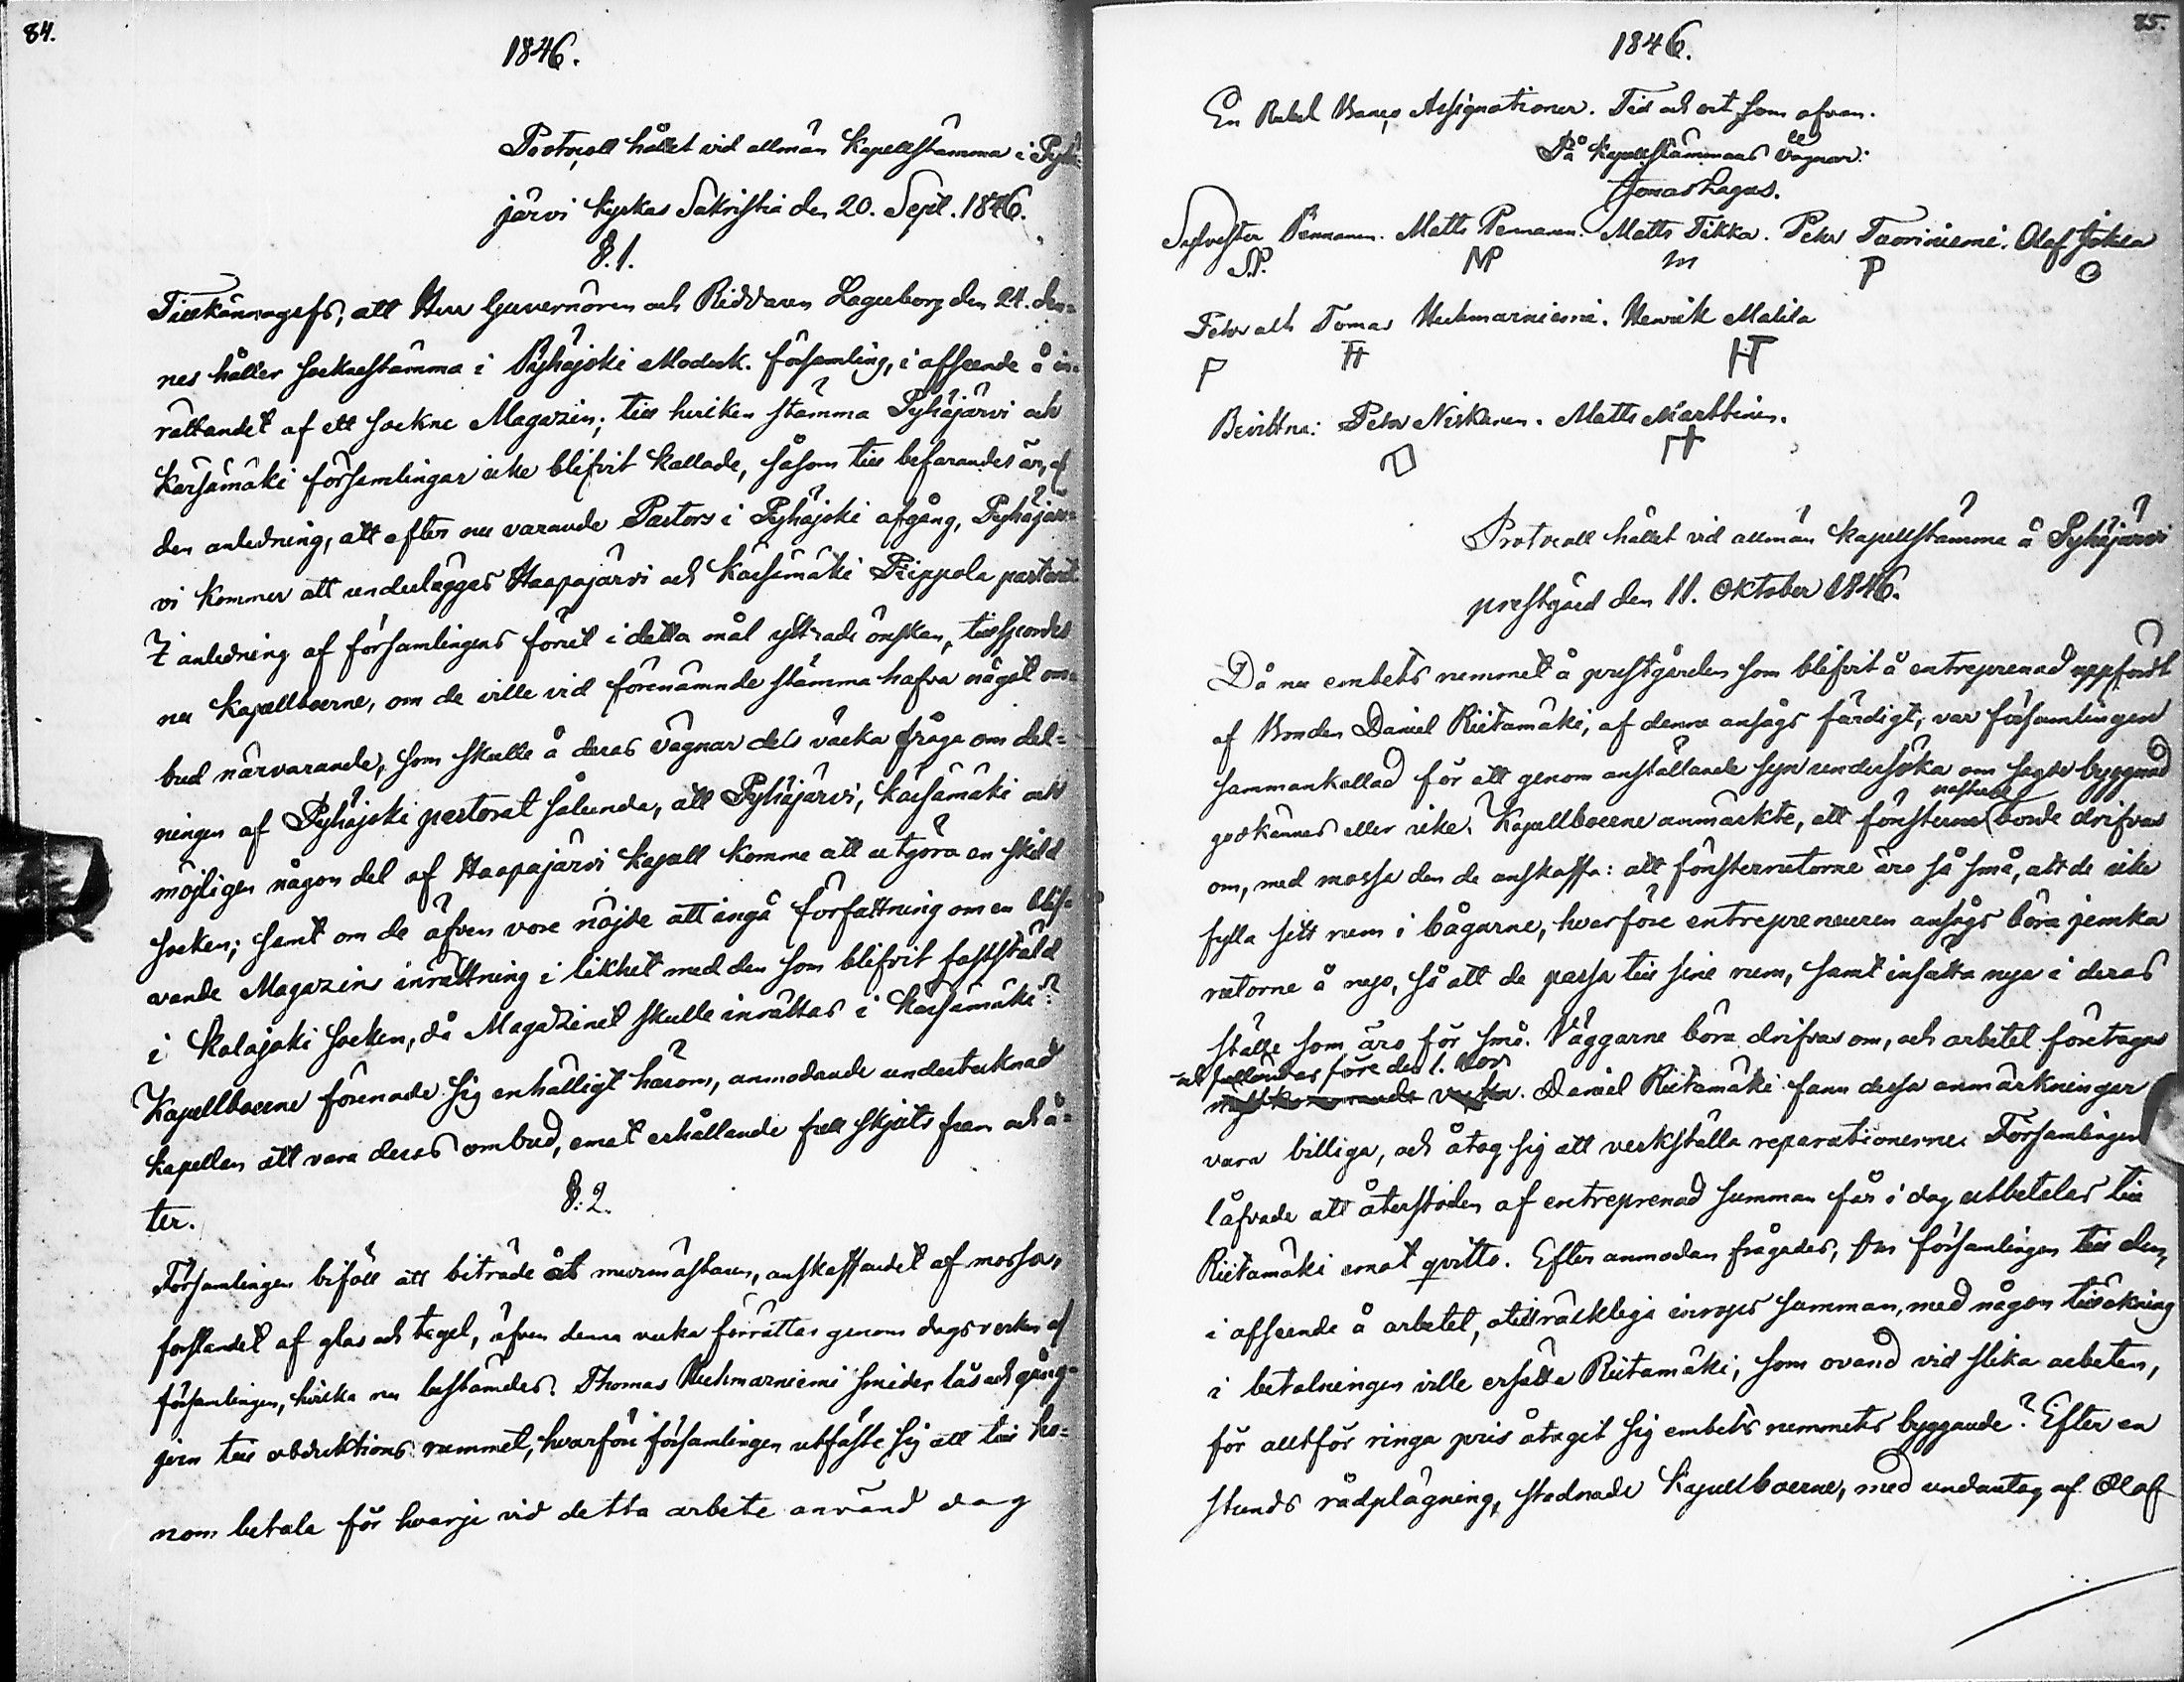 84.
1846.
Protocoll hållet vid allmän Kapellstämma i Pyhä-
järvi Kyrkas Sakristia den 20. Sept. 1846.
§. 1.
Tillkännagafs, att Herr Guvernören och Riddaren Lagerborg den 24. den-
nes håller sockenstämma i Pyhäjoki Moderk. församling, i afseende å in-
rättandet af ett sockne Magazin; till hvilken stämma Pyhäjärvi och
Kärsämäki församlingar icke blifvit kallade, såsom till befarandes är, af
den anledning, att efter nu varande Pastors i Pyhäjoki afgång, Pyhäjär-
vi kommer att underläggas Haapajärvi och Kärsämäki Piippola pastorat.
I anledning af församlingens förut i detta mål yttrade önskan, tillspordes
nu Kapellboerne, om de ville vid förenämnde stämma hafva något om-
bud närvarande, som skulle å deras vägnar dels väcka fråga om del-
ningen af Pyhäjoki pastorat sålunda, att Pyhäjärvi, Kärsämäki och
möjligen någon del af Haapajärvi Kapell komme att utgöra en skild
socken; samt om de äfven vore nöjde att ingå författning om en blif-
vande Magazins inrättning i likhet med den som blifvit fastställd
i Kalajoki socken, då Magazinet skulle inrättas i Kärsämäki?
Kapellboerne förenade sig enhälligt härom, anmodande undertecknad
Kapellan att vara deras ombud, emot erhållande full skjuts fram och å-
ter.
§. 2.
Församlingen biföll att biträde åt murmästaren, anskaffandet af mossa,
forslandet af glas och tegel, äfven denna vecka förrättas genom dagsverken af
församlingen, hvilka nu bestämdes. Thomas Ruhmarniemi smider lås och gång-
jern till obduktions rummet, hvarföre församlingen utfäste sig att till ho-
nom betala för hvarje vid detta arbete använd dag
85.
1846.
En Rubel Banco Assignationer. Tid och ort som ofvan.
På Kapellstämmans vägnar:
Jonas Lagus.
Sylvester Pennanen. Matts Pennanen. Matts Tikka. Petter Tuoriniemi. Olof Jokela
S.P. MP m P O
Petter och Tomas Ruhmarniemi. Henrik Malila
P H HT
Bevittna: Petter Niskanen. Matts Marttinen.
Protocoll hållet vid allmän Kapellstämma å Pyhäjärvi
prestgård den 11. Oktober 1846.
Då nu embets rummet å prestgården som blifvit å entreprenad uppfördt
af Bonden Daniel Riitamäki, af denne ansågs färdigt, var församlingen
sammankallad för att genom anställande syn undersöka om sagde byggnad
godkännes eller icke. Kapellboerne anmärkte, att fönsterne borde drifvas
om, med mossa den de anskaffa: att fönsterrutorne äro så små, att de icke
fylla sitt rum i bågarne, hvarföre entrepreneuren ansågs böra jemka
rutorne å nyo, så att de passa till sine rum, samt insätta nya i deras
ställe som äro för små. Väggarne böra drifvas om, och arbetet företagas
och fulländas före den 1. Nov
nästkommande vecka. Daniel Riitamäki fann dessa anmärkningar
vara billiga, och åtog sig att verkställa reparationerne. Församlingen
låfvade att återstoden af entreprenad summan får i dag utbetalas till
Riitamäki emot qvitto. Efter anmodan frågades, om församlingen till den,
i afseende å arbetet, otillräckliga inrops summan, med någon tillökning
i betalningen ville ersätta Riitamäki, som ovand vid slika arbeten,
för alltför ringa pris åtagit sig embets rummets byggande? Efter en
stunds rådplägning, stadnade Kapellboerne, med undantag af Olof